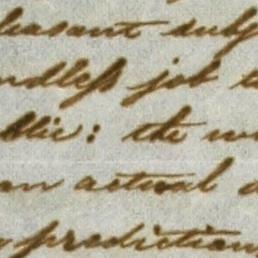 leasant subj
ndless job t
blic: the w
an actual
predictions